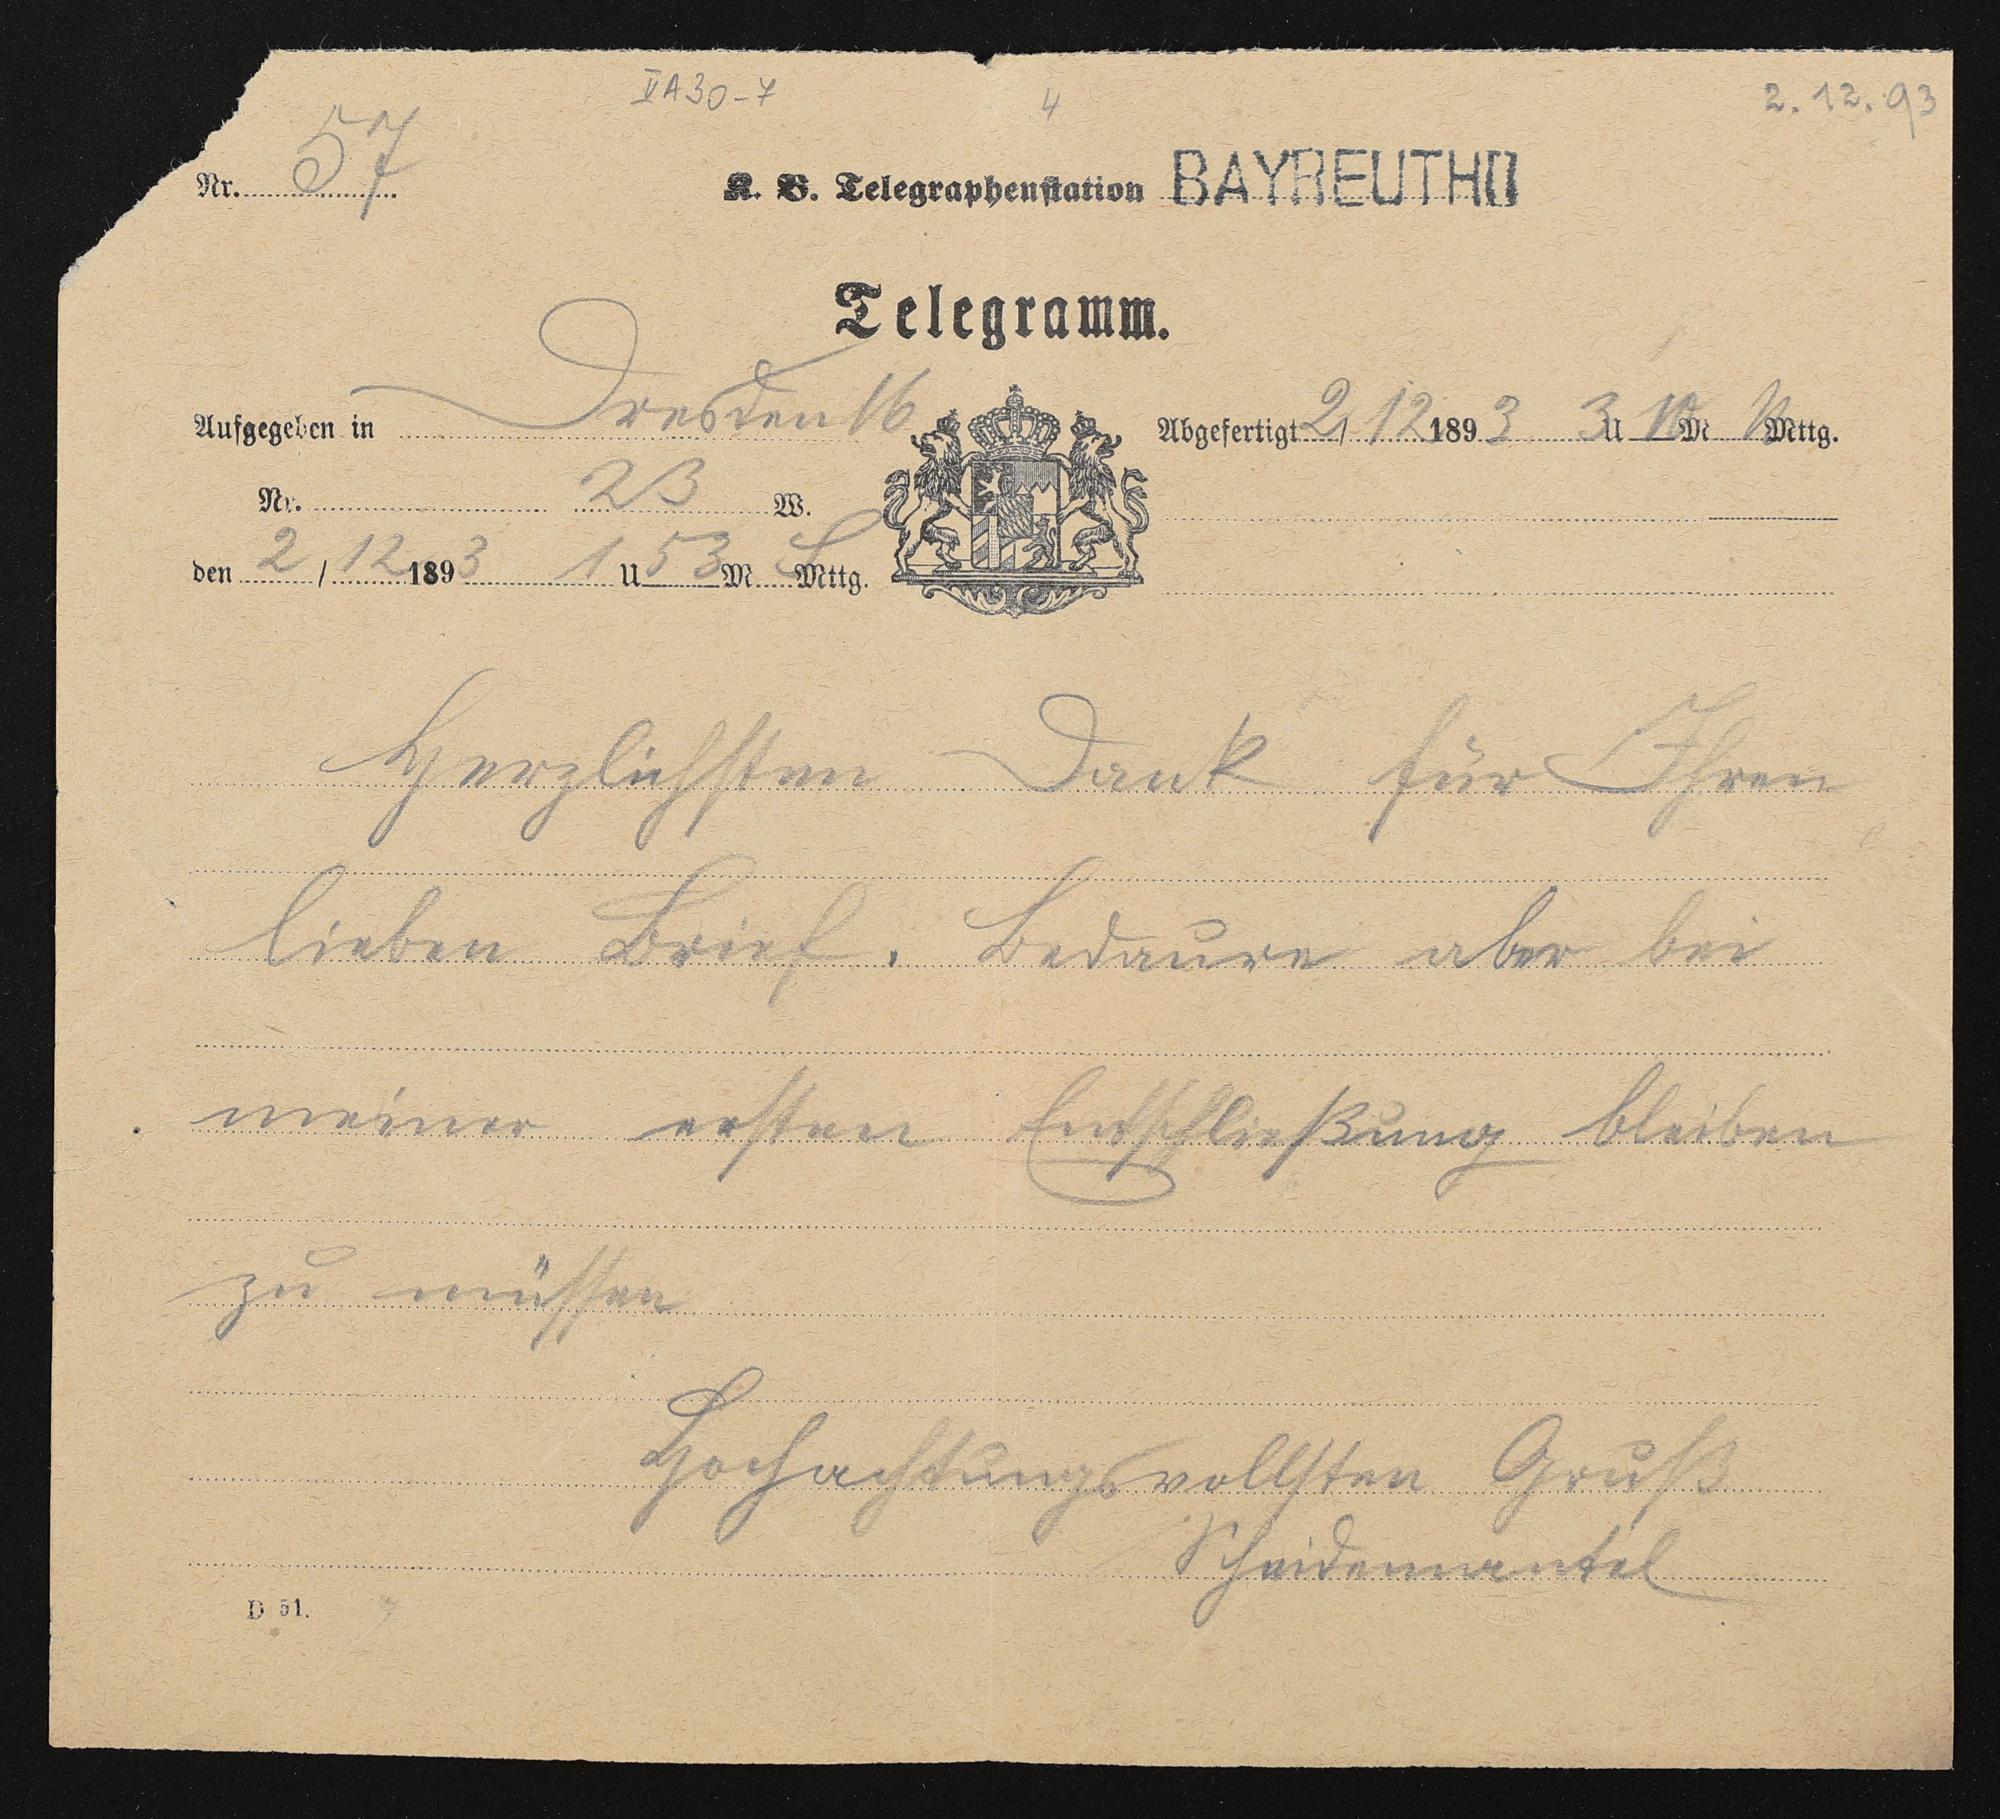 VA30-7
4
2.12.93
Nr. 57
K. B. Telegraphenstation BAYREUTH II
Telegramm.
Aufgegeben in Dresden 16
Abgefertigt 2/12 1893 3 U 10 M N Mttg.
Nr. 23 W.
den 2/12 1893 1 U 53 M Mttg.
Herzlichsten Dank für Ihren
lieben Brief. Bedaure aber bei
meiner ersten Entschließung bleiben
zu müssen
Hochachtungsvollsten Gruß
Scheidemantel
D 51.